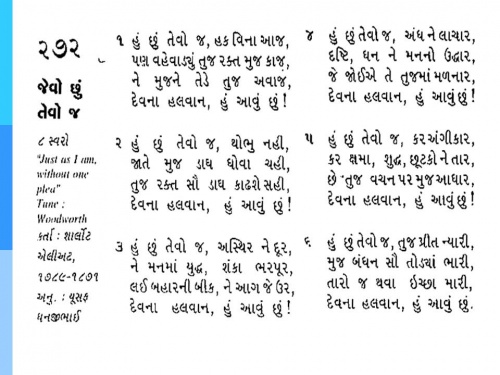 ૨૭૨
જેવો છું
તેવો જ
૮ સ્વરો
"Just us I am,
without one
plea"
Tune :
Woodworth
કર્તા : શાર્લોટ
એલીઅટ,
૧૭૮૯-૧૮૭૧
અનુ. : યૂસફ
ધનજીભાઈ
૧ હું છું તેવો જ, હક વિના આજ,
પણ વહેવાડ્યું તુજ રક્ત મુજ કાજ,
ને મુજને તેડે તુજ અવાજ,
દેવના હલવાન, હું આવું છું!
૨ હું છું તેવો જ, થોભુ નહી,
જાતે મુજ ડાઘ ધોવા ચહી,
તુજ રક્ત સૌ ડાઘ કાઢશે સહી,
દેવના હલવાન, હું આવું છું!
૩ હું છું તેવો જ, અસ્થિર ને દૂર,
ને મનમાં યુદ્ધ, શંકા ભરપૂર,
લઈ બહારની બીક, ને આગ જે ઉર,
દેવના હલવાન, હું આવું છું!
૪ હું છું તેવો જ, અંધ ને લાચાર,
દૃષ્ટિ, ધન ને મનનો ઉદ્ધાર,
જે જોઈએ તે તુજમાં મળનાર,
દેવના હલવાન, હું આવું છું!
૫ હું છું તેવો જ, કર અંગીકાર,
કર ક્ષમા, શુદ્ધ, છૂટકો ને તાર,
છે તુજ વચન પર મુજ આધાર,
દેવના હલવાન, હું આવું છું!
૬ હું છું તેવો જ, તુજ પ્રીત ન્યારી,
મુજ બંધન સૌ તોડ્યાં ભારી,
તારો જ થવા ઇચ્છા મારી,
દેવના હલવાન, હું આવું છું.